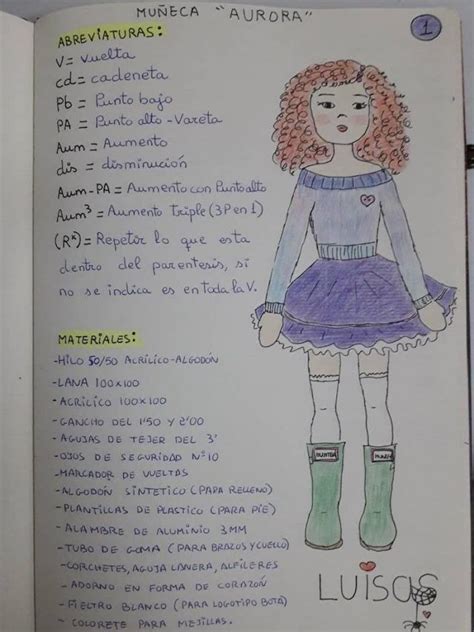 MUÑECA "AURORA"
1
ABREVIATURAS:
V = Vuelta
cd = cadeneta
Pb = Punto bajo
PA = Punto alto - Vareta
Aum = Aumento
dis = disminución
Aum-PA = Aumento con Punto alto
Aum³ = Aumento Triple (3P en 1)
(R*) = Repetir lo que esta
dentro del parentesis, si
no se indica es en toda la V.
MATERIALES:
-HILO 50/50 ACRÍLICO-ALGODÓN
-LANA 100X100
-ACRÍLICO 100X100
-GANCHO DEL 1'50 Y 2'00
-AGUJAS DE TEJER DEL 3'
-OJOS DE SEGURIDAD Nº10
-MARCADOR DE VUELTAS
-ALGODÓN SINTETICO (PARA RELLENO)
-PLANTILLAS DE PLASTICO (PARA PÍE)
-ALAMBRE DE ALUMINIO 3MM
-TUBO DE GOMA (PARA BRAZOS Y CUELLO)
-CORCHETES, AGUJA LANERA, ALFILERES
-ADORNO EN FORMA DE CORAZÓN
-FIELTRO BLANCO (PARA LOGOTIPO BOTA)
-COLORETE PARA MEJILLAS.
HUNTER
LUISOS